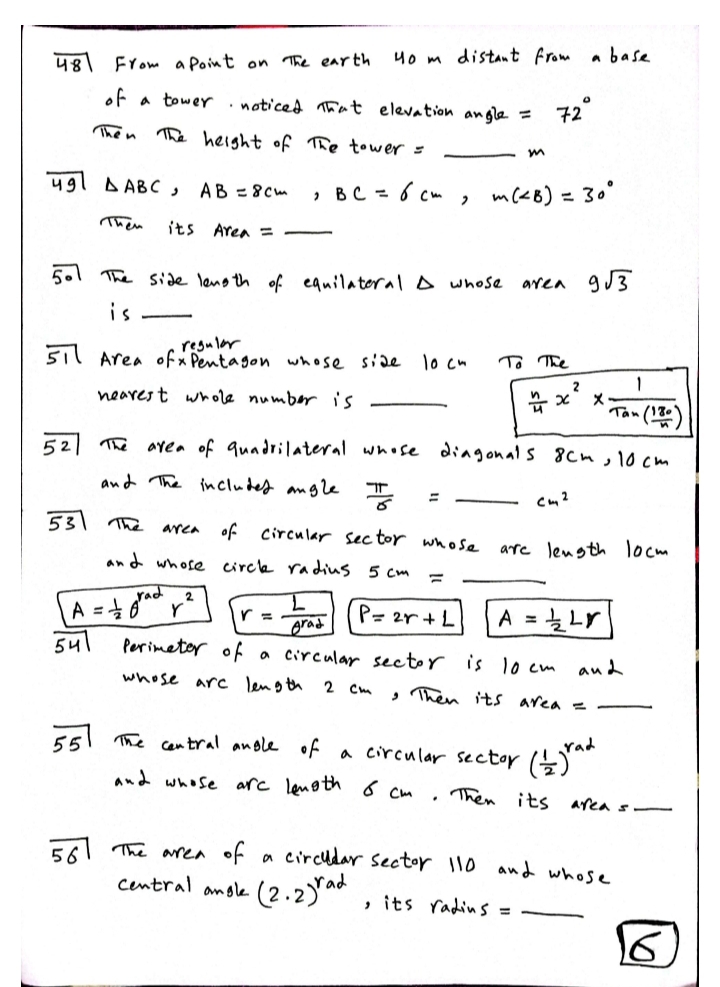 48 From a Point on The earth 40 m distant from a base
of a tower . noticed That elevation angle = 72°
Then The height of The tower = ____ m
49 Δ ABC , AB = 8cm , BC = 6 cm , m(<B) = 30°
Then its Area = ____
50 The side length of equilateral Δ whose area 9√3
is ____
51 Area of x regular Pentagon whose side 10 cm To The
nearest whole number is ____
n/4 x² × 1/Tan(180/n)
52 The area of quadrilateral whose diagonals 8cm , 10 cm
and The included angle π/6 = ____ cm²
53 The area of circular sector whose arc length 10cm
and whose circle radius 5 cm = ____
A = ½ θ^rad r² r = L/θ^rad P = 2r + L A = ½ L r
54 Perimeter of a circular sector is 10 cm and
whose arc length 2 cm , Then its area = ____
55 The central angle of a circular sector (½)^rad
and whose arc length 6 cm . Then its area = ____
56 The area of a circular sector 110 and whose
central angle (2.2)^rad , its radius = ____
6